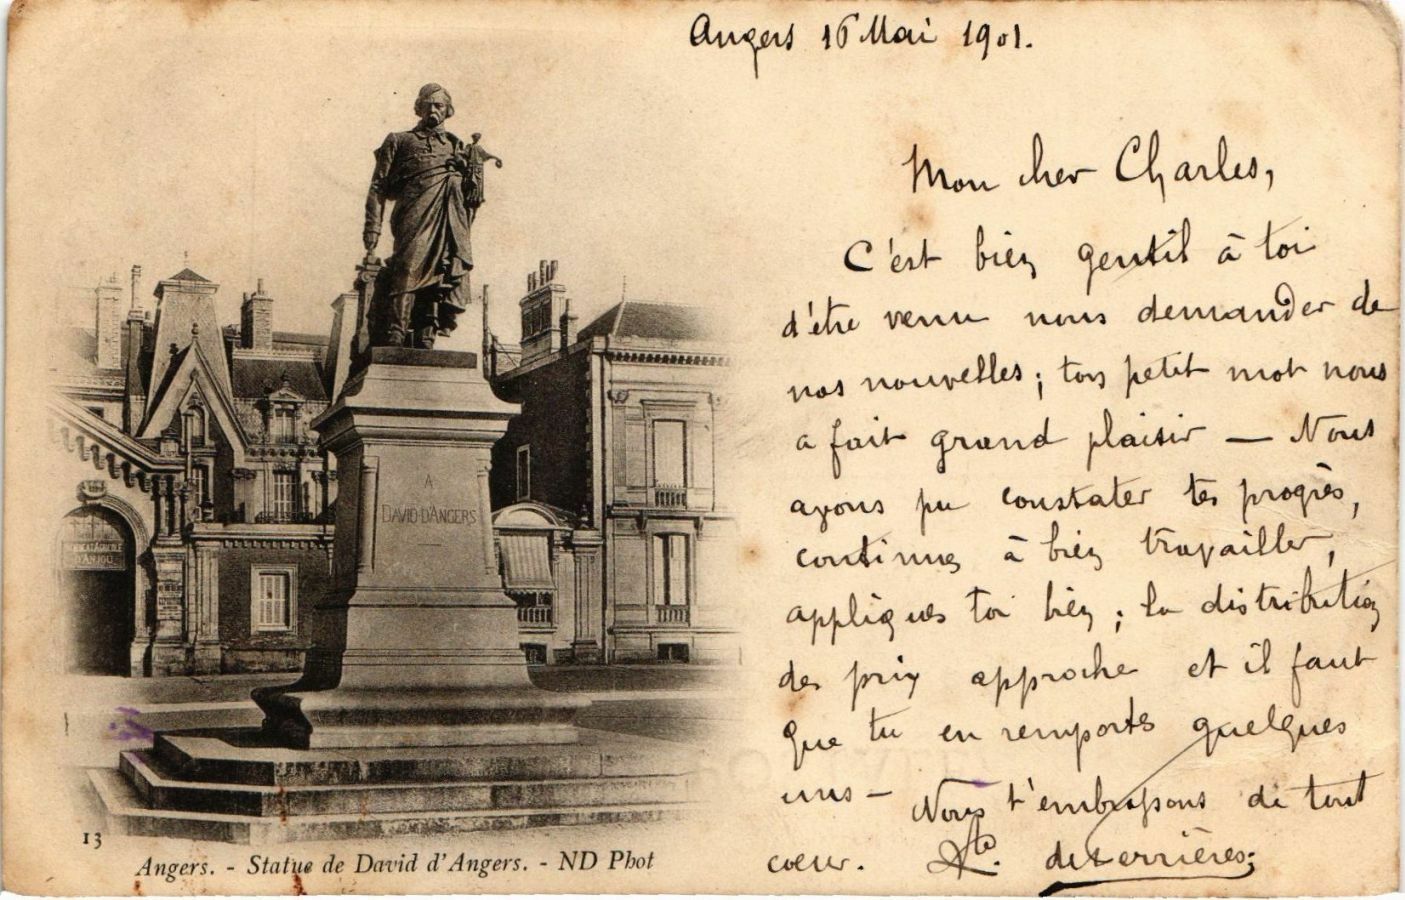 Angers 16 Mai 1901.
Mon cher Charles,
C'est bien gentil à toi
d'être venu nous demander de
nos nouvelles; ton petit mot nous
a fait grand plaisir — Nous
avons pu constater tes progrès,
continues à bien travailler,
appliques toi bien; la distribution
des prix approche et il faut
que tu en remportes quelques
uns — Nous t'embrassons de tout
coeur.
A
DAVID D'ANGERS
SYNDICAT AGRICOLE
D'ANJOU
13
Angers. - Statue de David d'Angers. - ND Phot